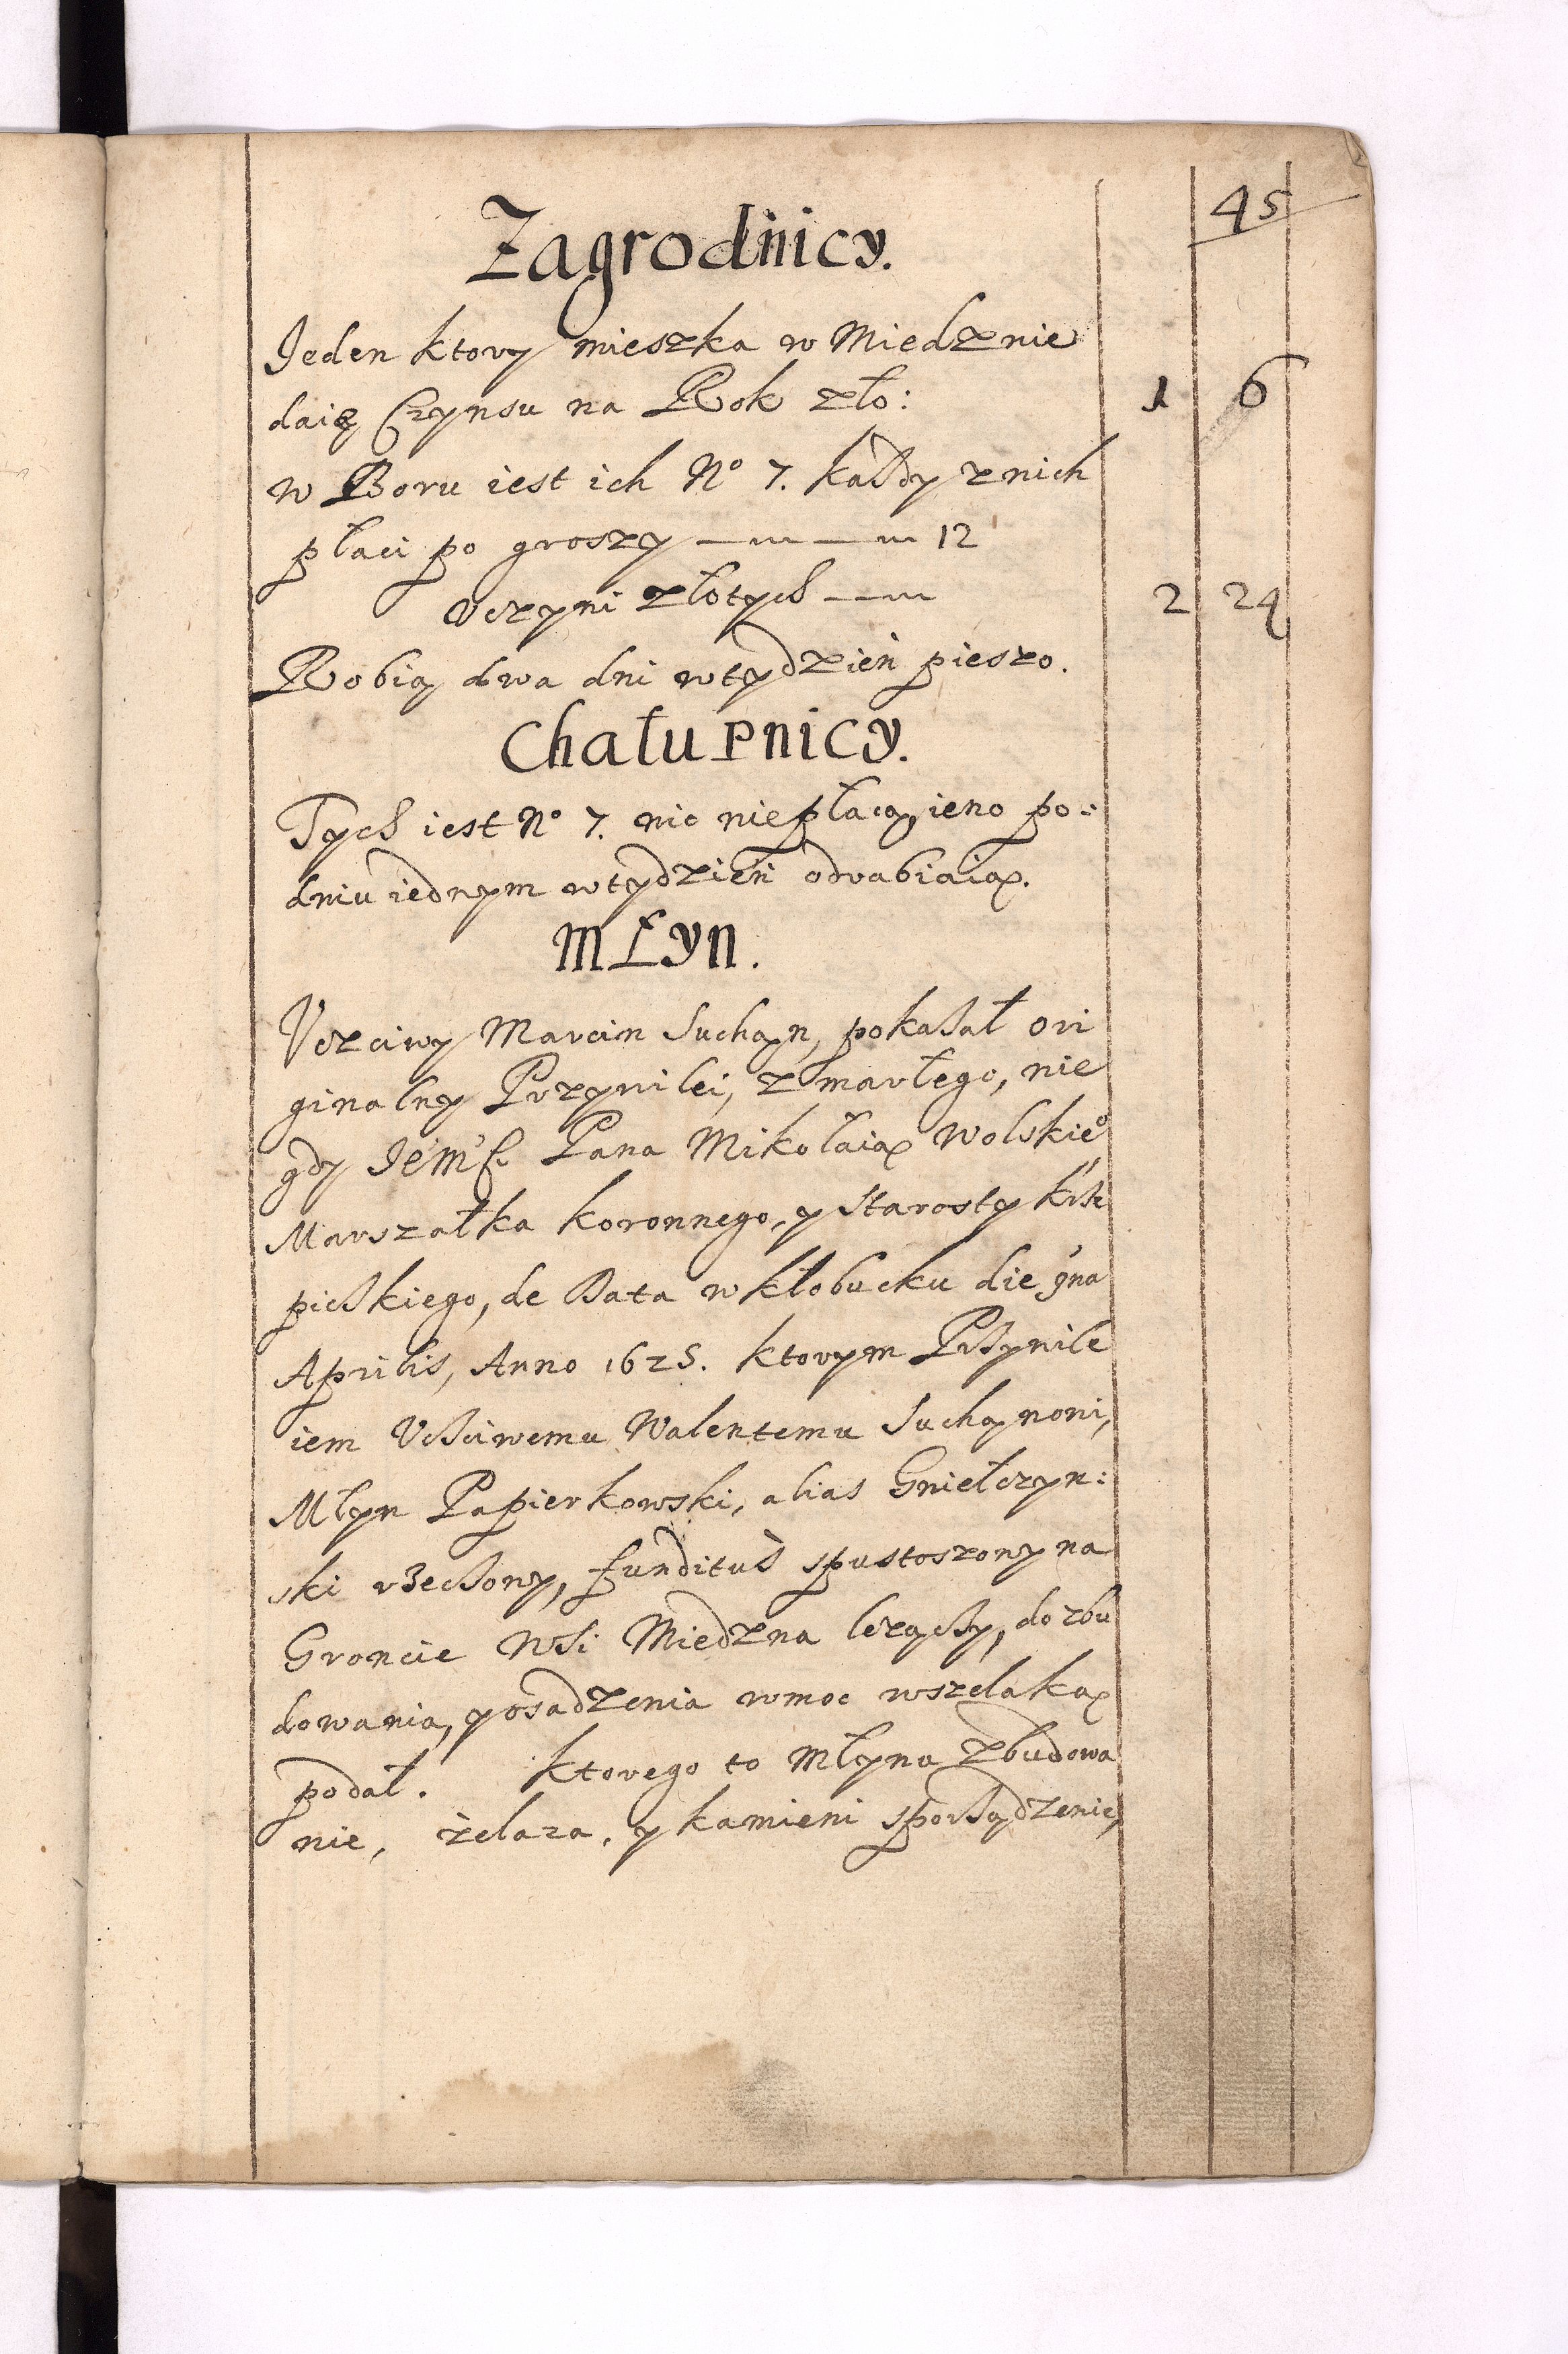 45
Zagrodnicy.
Jeden ktory mieszka w Miedznie
daię Czynsu na Rok zło: 1 6
w Boru iest ich No 7. każdy z nich
płaci po groszy 12
Uczyni złotych 2 24
Robią dwa dni wtydzień pieszo.
Chałupnicy.
Tych iest No 7. nic niepłacą, ieno po:
dniu iednym wtydzień odrabiaią.
Młyn.
Uczciwy Marcin Suchyn, pokazał ori
ginalny Przyvilei, zmarłego, nie
gdy Jeͦmſc. Pana Mikołaia Wolskieͦ
Marszałka koronnego, y Starosty krze
pickiego, de Data w kłobucku die 9na
Aprilis, Anno 1625. ktorym Przyvile
iem Uczciwemu Walentemu Suchynoni,
Młyn Papierkowski, alias Gniełczyn:
ski rzeczony, funditus spustoszony na
Groncie Wsi Miedzna leżączy, do zbu
dowania, y osadzenia wmoc wszelaką
podał. ktorego to Młyna Zbudowa
nie, żelaza, y kamieni sporządzenie,